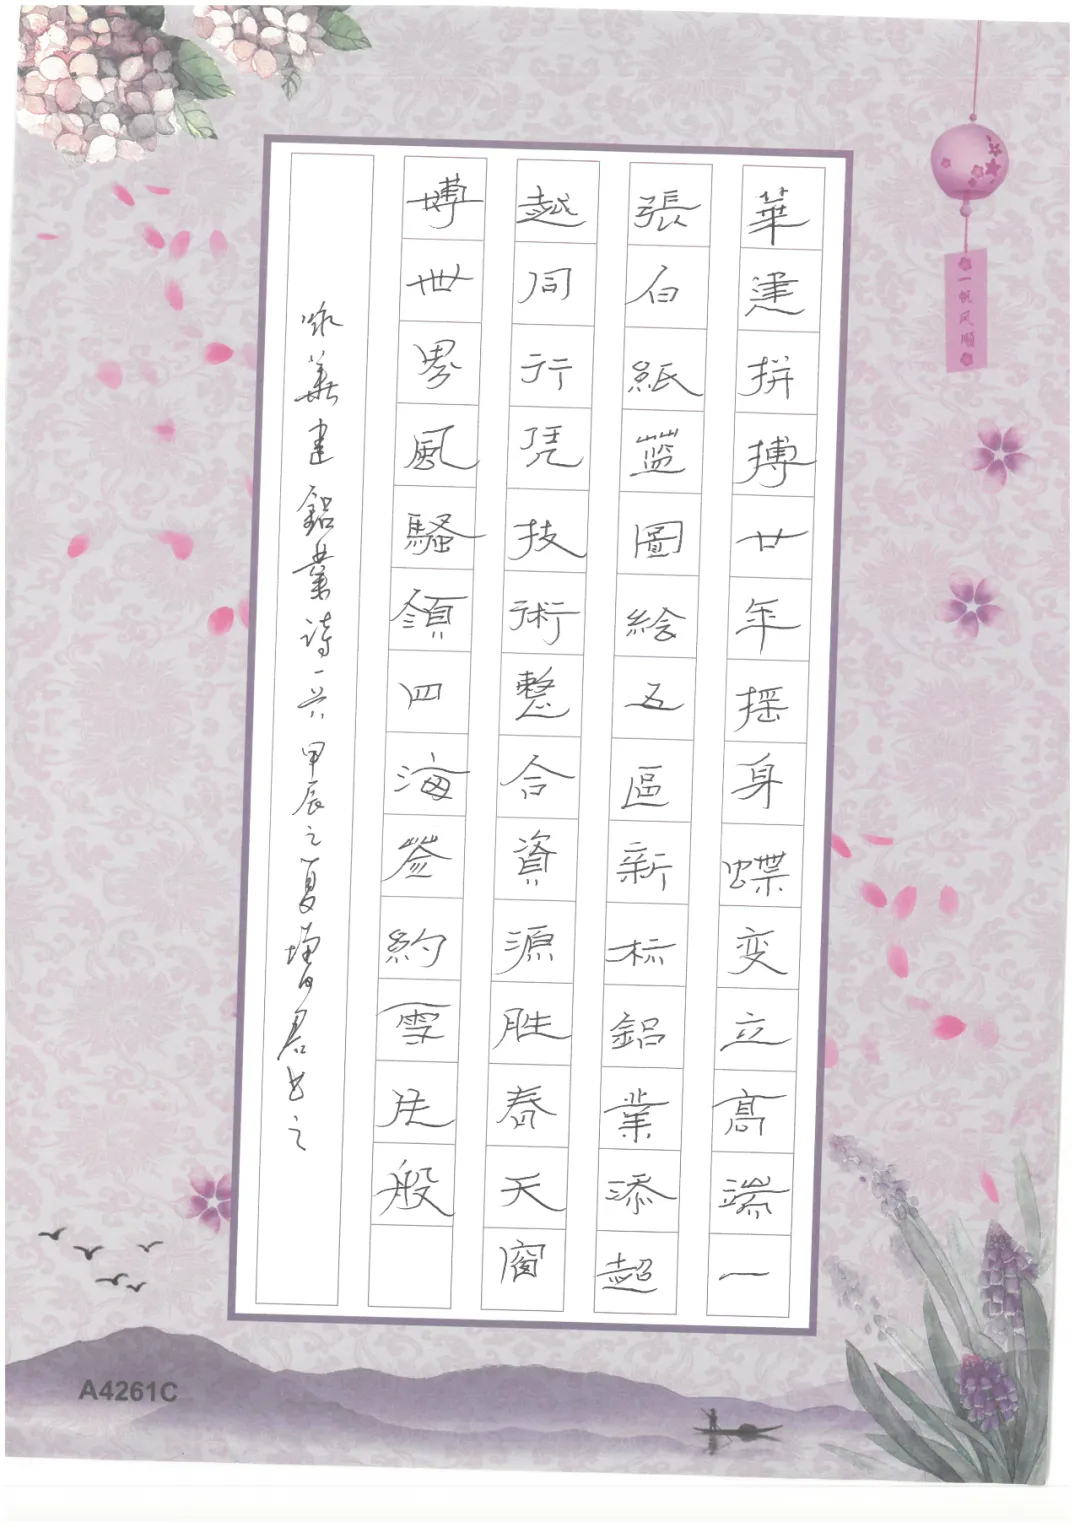 華建拼搏廿年摇身蝶变立高端一
張白紙蓝圖绘五區新标鋁業添超
越同行凭技術整合資源胜春天窗
博世界風騷領四海签約雪片般
咏華建鋁業詩一首甲辰之夏增君书之
一帆风顺
A4261C